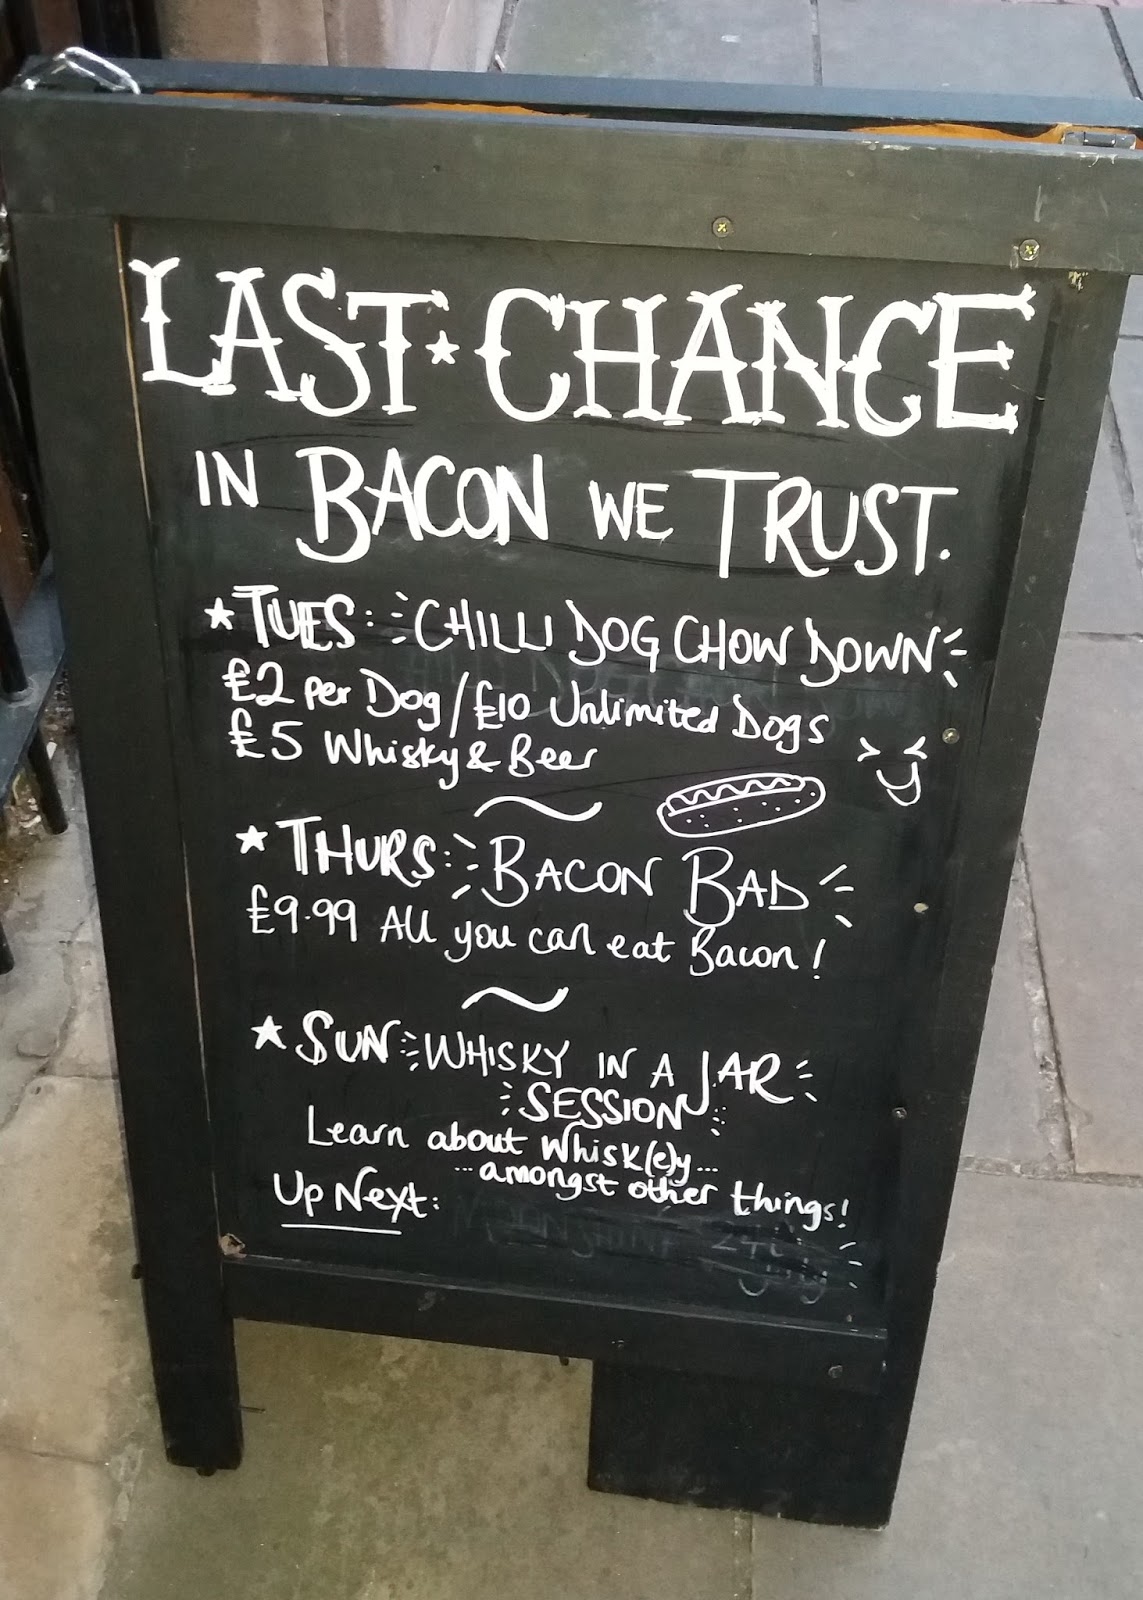 LAST★CHANCE
IN BACON WE TRUST.
★ TUES: CHILLI DOG CHOW DOWN
£2 per Dog/£10 Unlimited Dogs
£5 Whisky & Beer
~
★ THURS: BACON BAD
£9.99 All you can eat Bacon!
~
★ SUN WHISKY IN A JAR
SESSION
Learn about Whisk(e)y...
...amongst other things!
Up Next: